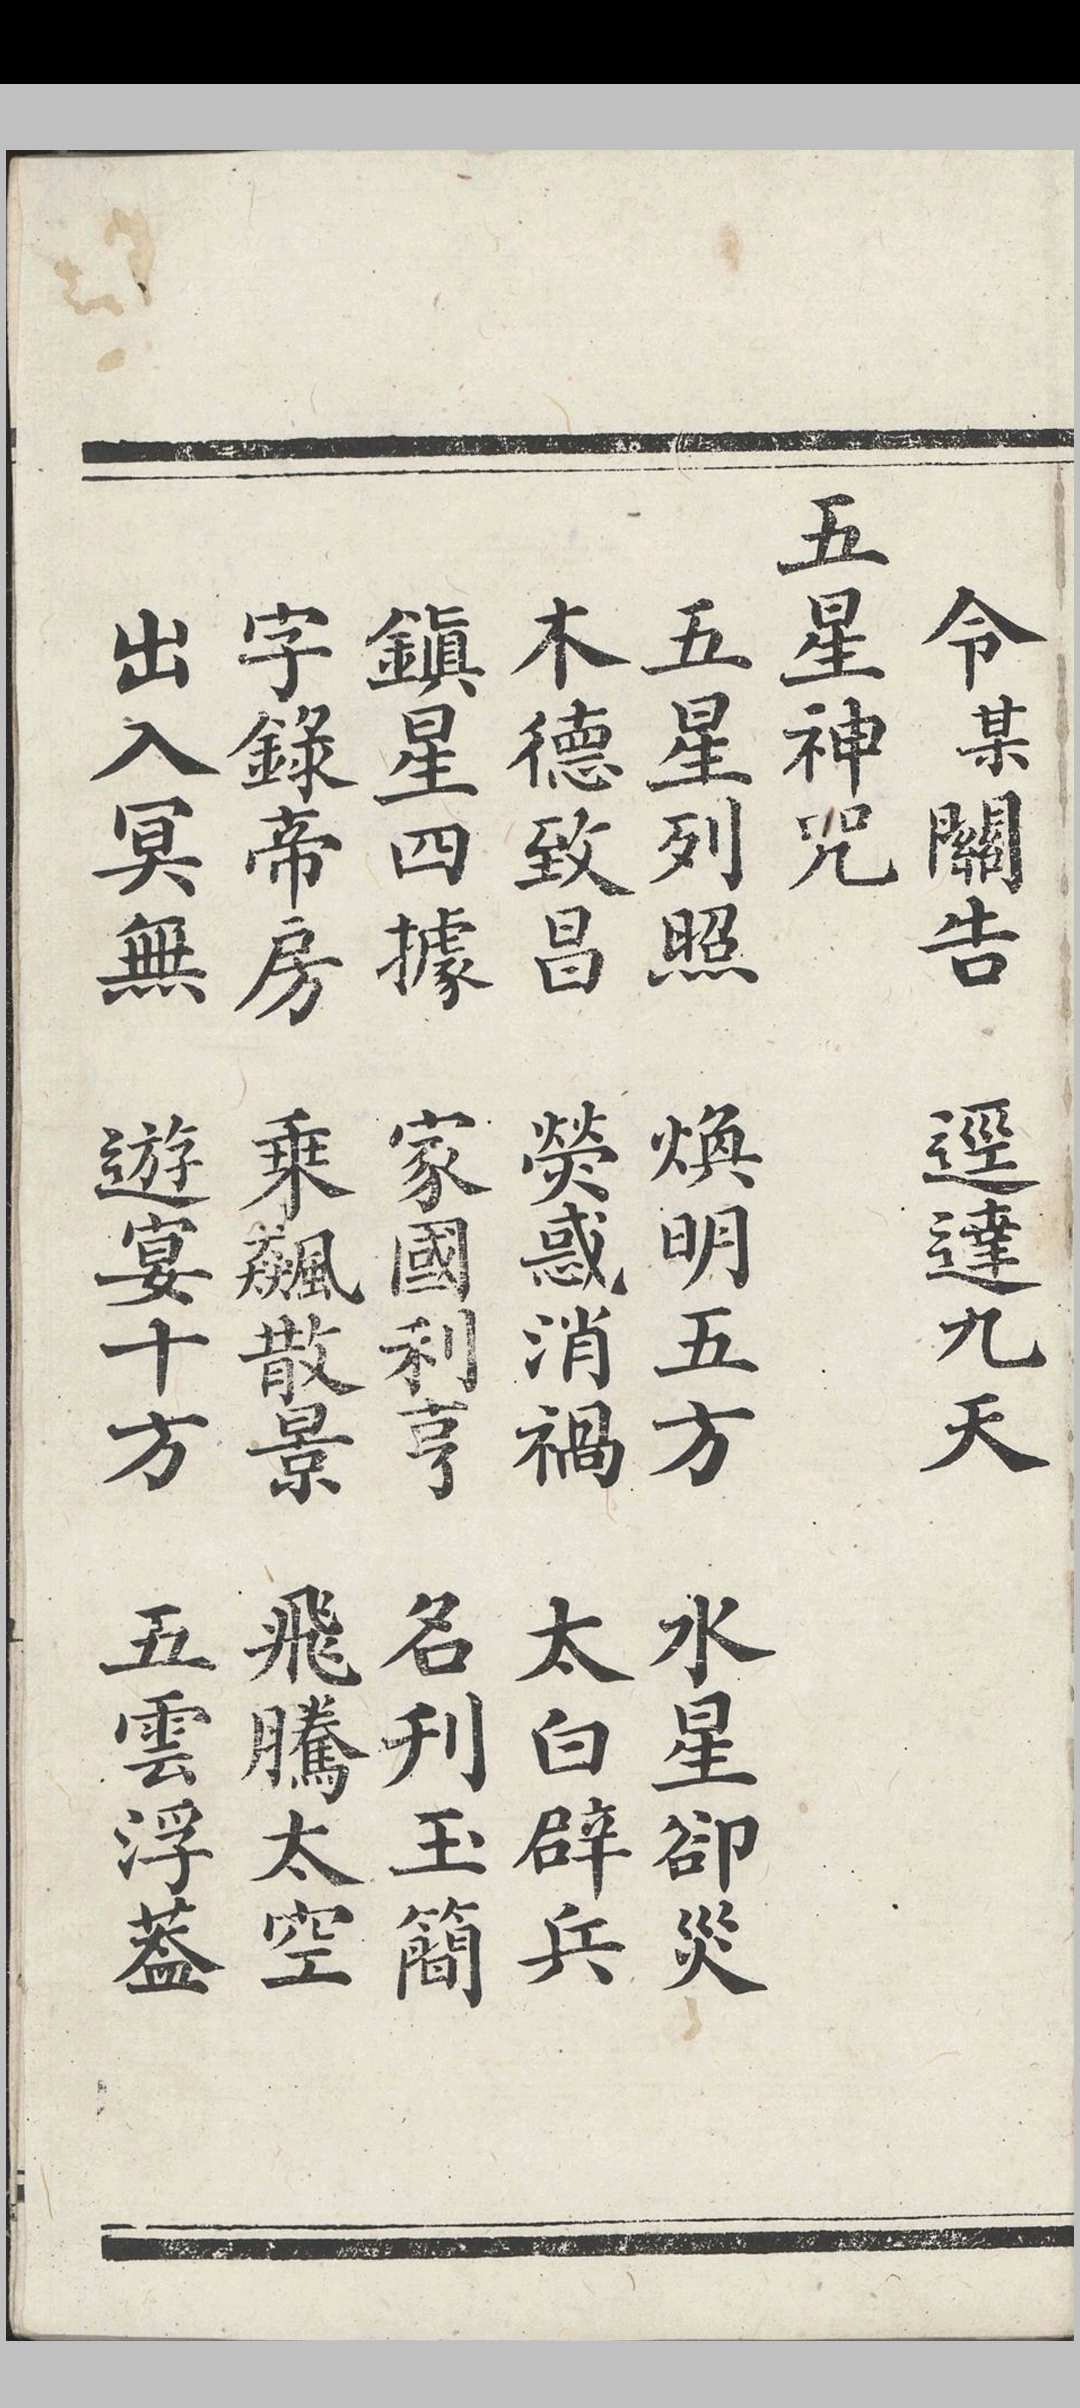 令某關告　逕達九天
五星神咒
五星列照　煥明五方　水星卻災
木德致昌　熒惑消禍　太白辟兵
鎭星四據　家國利亨　名刋玉簡
字錄帝房　乗飆散景　飛騰太空
出入冥無　遊宴十方　五雲浮葢